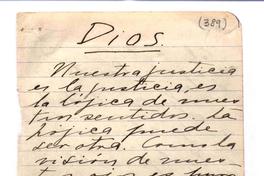 (389)
Dios.
Nuestra justicia
es la justicia, es
la lógica de nues
tros sentidos. La
lógica puede
ser otra. Como la
visión de nues
tros ojos es para